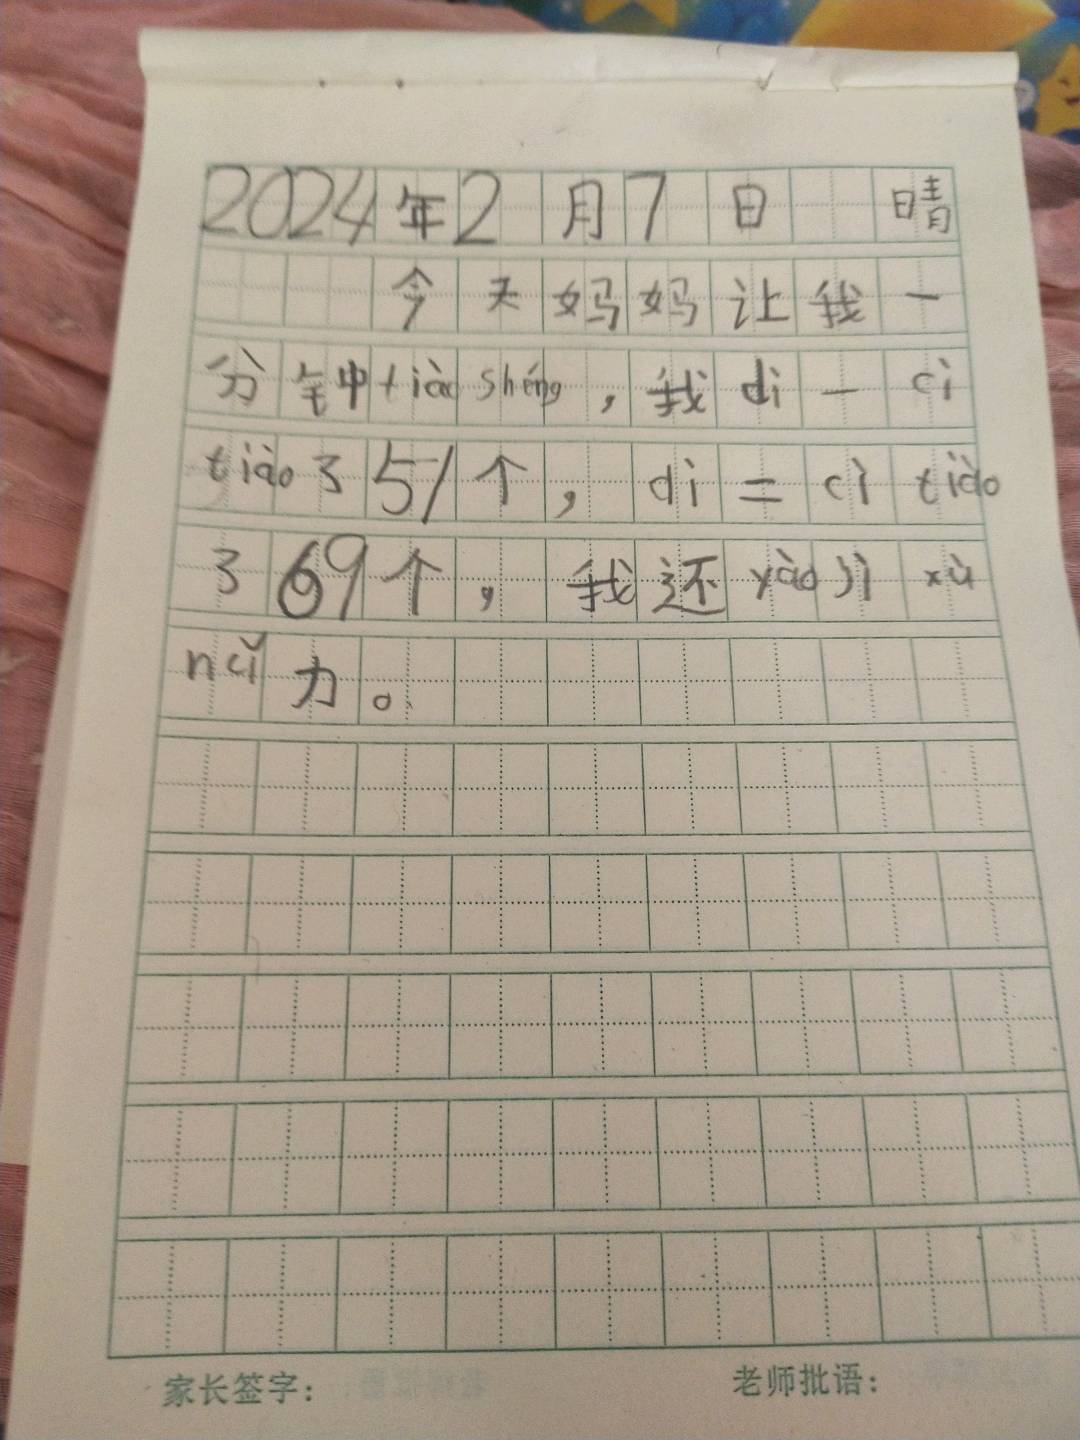 2024年2月7日 晴
今天妈妈让我一
分钟tiào shéng，我dì一cì
tiào了51个，dì二cì tiào
了69个，我还yào jì xù
nǔ力。
家长签字：
老师批语：